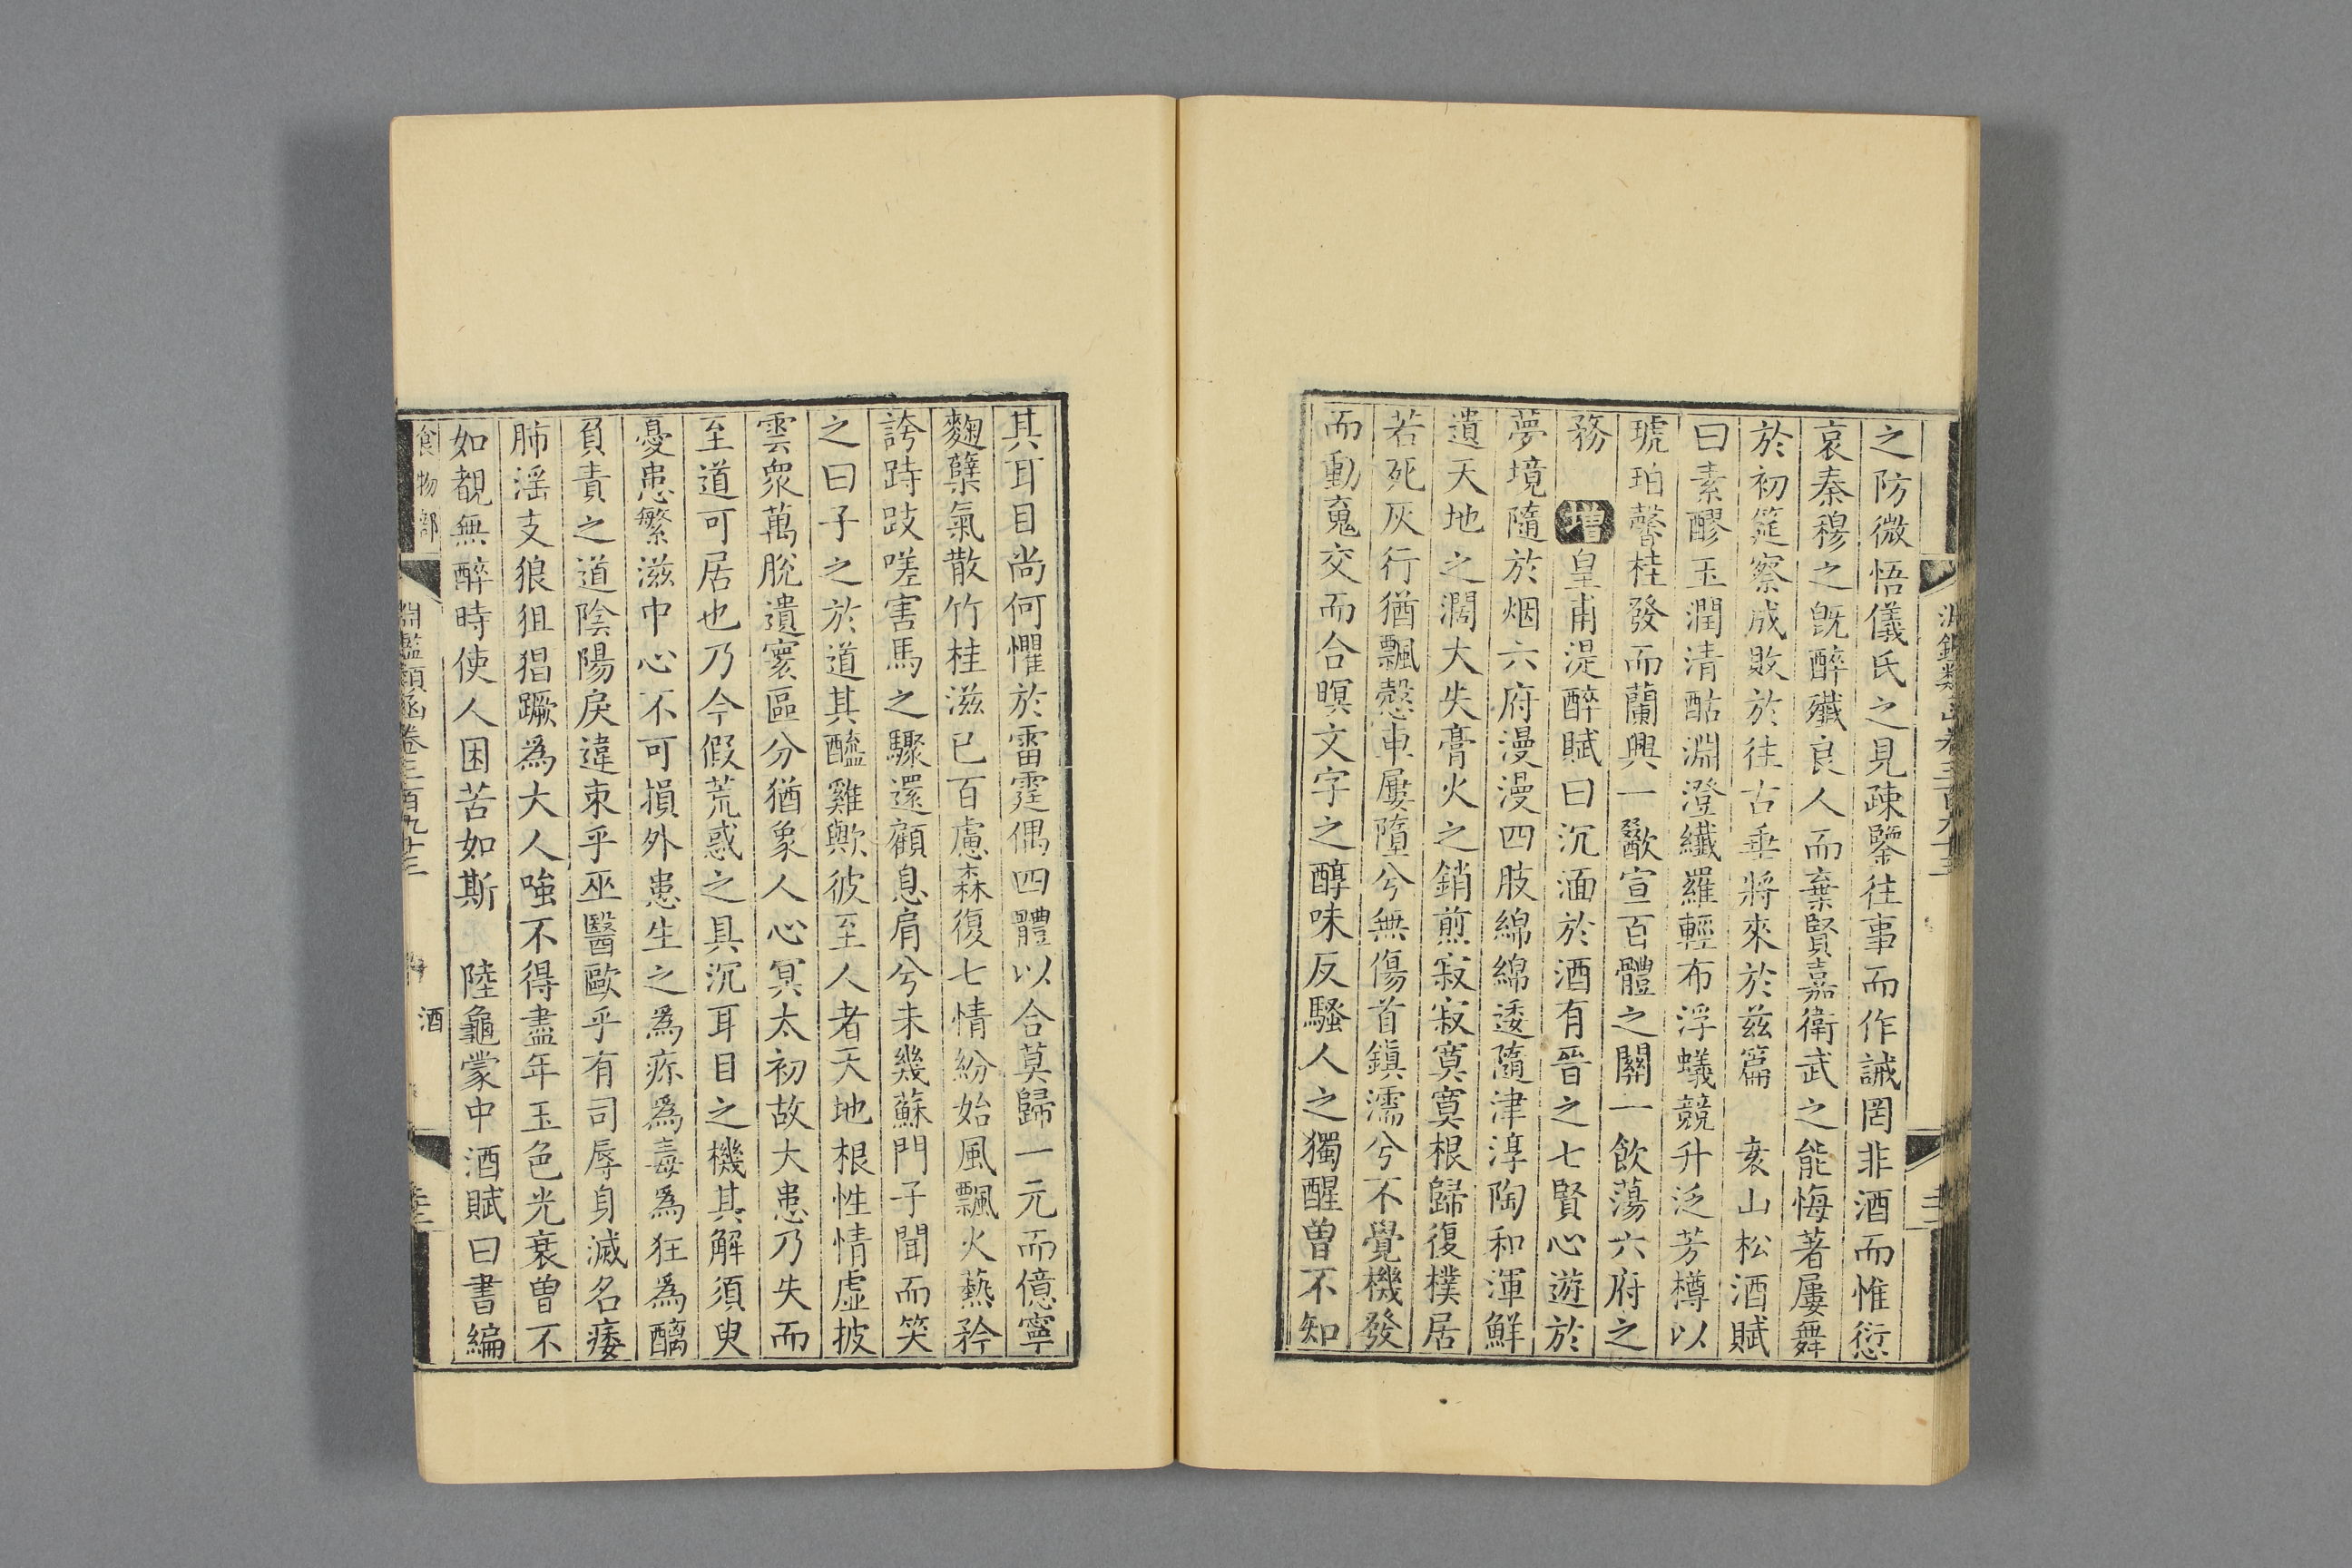 之防微悟儀氏之見疎鑒往事而作誡罔非酒而惟愆
哀秦穆之旣醉殲良人而棄賢嘉衛武之能悔著屢舞
於初筵察成敗於往古垂將來於兹篇　袁山松酒賦
曰素醪玉潤清酤淵澄纎羅輕布浮蟻競升泛芳樽以
琥珀馨桂發而蘭興一歠宣百體之關一飲蕩六府之
務　增皇甫湜醉賦曰沉湎於酒有晉之七賢心遊於
夢境隨於烟六府漫漫四肢綿綿逶隨津淳陶和渾鮮
遺天地之濶大失膏火之銷煎寂寂寞寞根歸復樸居
若死灰行猶飄慤車屢墮兮無傷首鎭濡兮不覺機發
而動䰟交而合暝文字之醇味反騷人之獨醒曾不知
其耳目尚何懼於雷霆偶四體以合莫歸一元而億寧
麴糵氣散竹桂滋已百慮森復七情紛始風飄火爇矜
誇跱跂嗟害馬之驟還顧息肩兮未幾蘇門子聞而笑
之曰子之於道其醯雞歟彼至人者天地根性情虛披
雲衆萬脫遺寰區分猶象人心冥太初故大患乃失而
至道可居也乃今假荒惑之具沉耳目之機其解須臾
憂患繁滋中心不可損外患生之爲疢爲毒爲狂爲醨
負責之道陰陽戾違束乎巫醫歐乎有司辱身滅名痿
肺滛支狼狙猖蹶爲大人嗤不得盡年玉色光衰曾不
如覩無醉時使人困苦如斯　陸龜蒙中酒賦曰書編
食物部
淵鑑類函卷三百九十三
酒